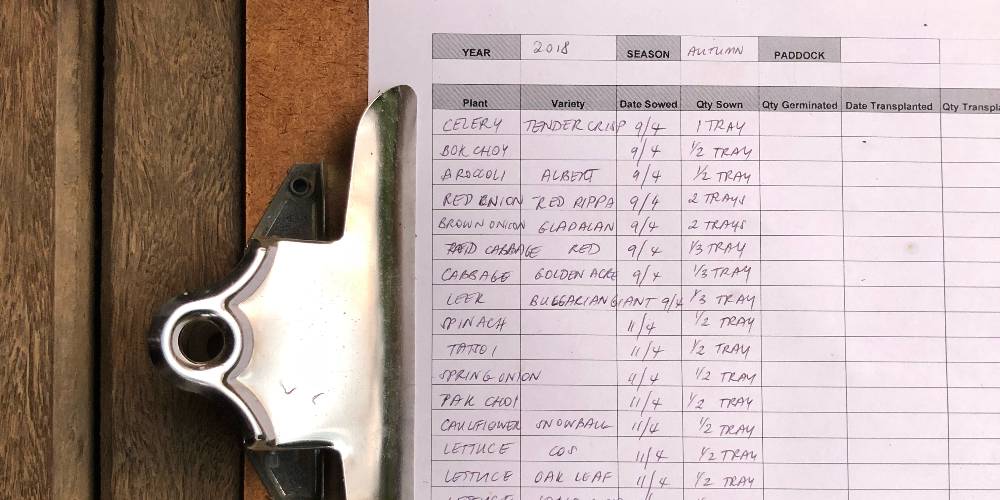 YEAR 2018 SEASON AUTUMN PADDOCK
Plant Variety Date Sowed Qty Sown Qty Germinated Date Transplanted Qty Transpla
CELERY TENDERCRISP 9/4 1 TRAY
BOK CHOY 9/4 1/2 TRAY
BROCCOLI ALBERT 9/4 1/2 TRAY
RED ONION RED RIPPA 9/4 2 TRAYS
BROWN ONION GLADALAN 9/4 2 TRAYS
RED CABBAGE RED 9/4 1/3 TRAY
CABBAGE GOLDEN ACRE 9/4 1/3 TRAY
LEEK BULGARIAN GIANT 9/4 1/3 TRAY
SPINACH 11/4 1/2 TRAY
TATSOI 11/4 1/2 TRAY
SPRING ONION 11/4 1/2 TRAY
PAK CHOI 11/4 1/2 TRAY
CAULIFLOWER SNOWBALL 11/4 1/2 TRAY
LETTUCE COS 11/4 1/2 TRAY
LETTUCE OAK LEAF 11/4 1/2 TRAY
LETTUCE